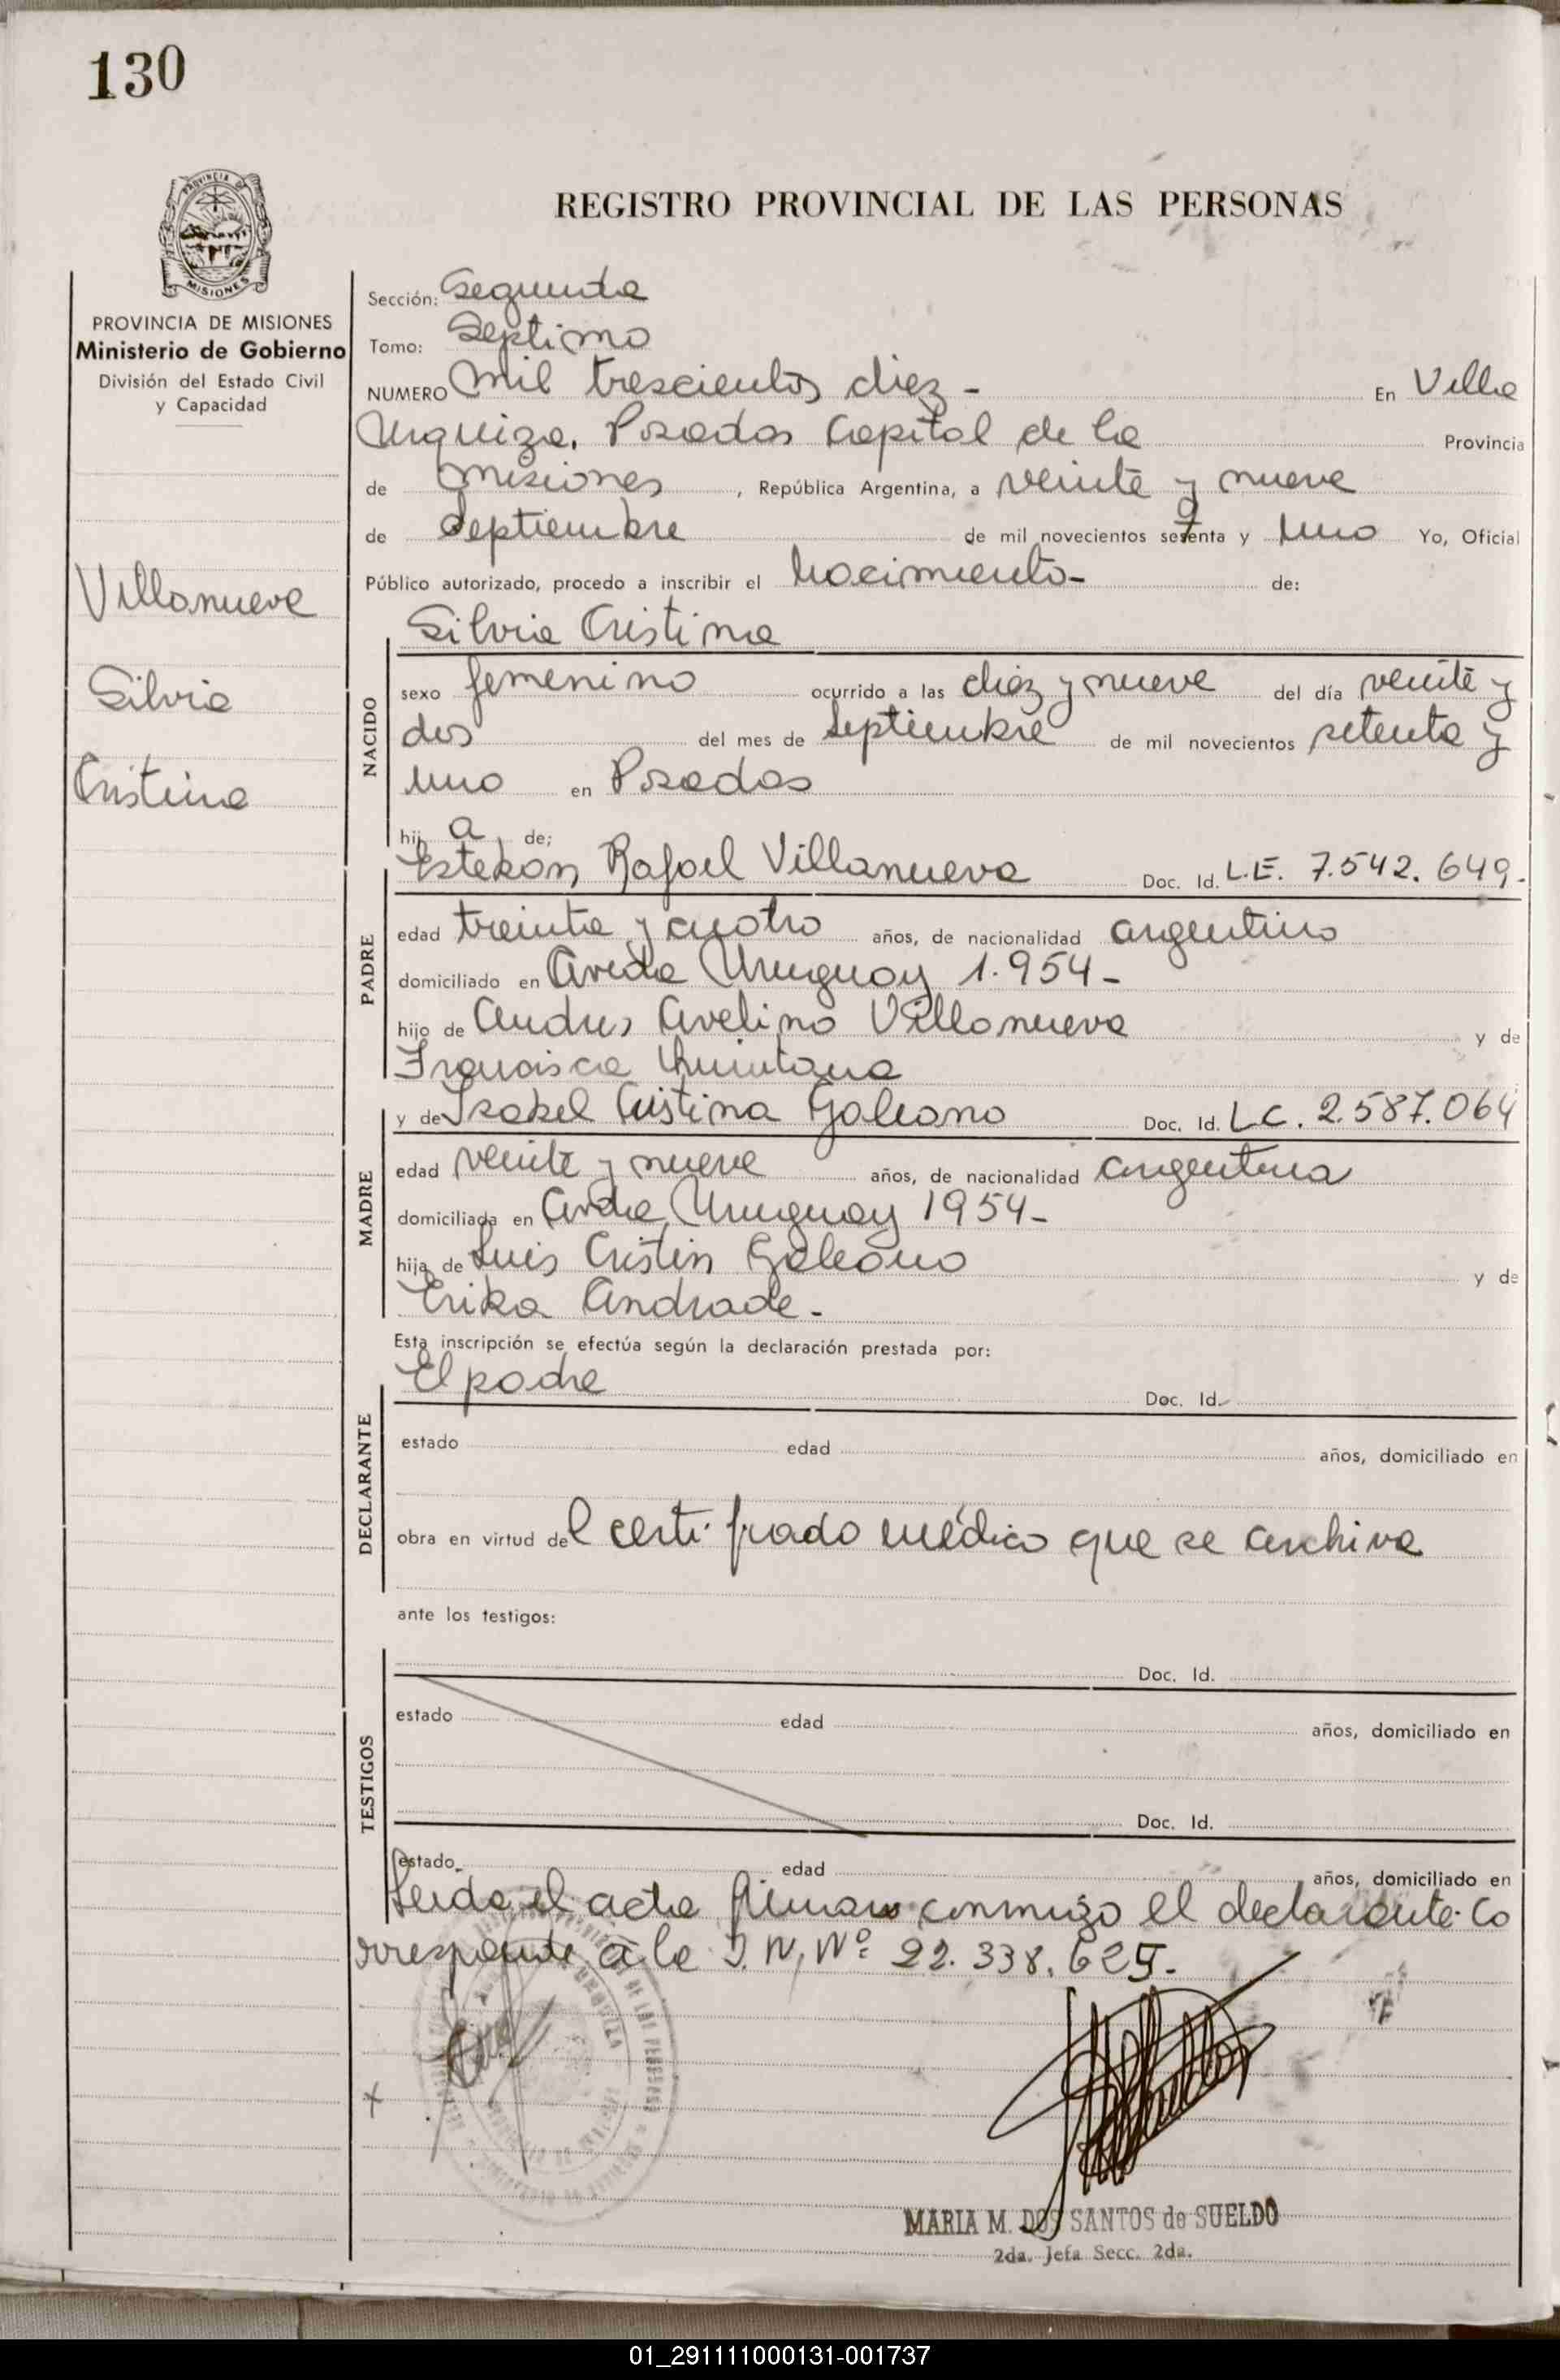 130
PROVINCIA DE
MISIONES
REGISTRO PROVINCIAL DE LAS PERSONAS
PROVINCIA DE MISIONES
Ministerio de Gobierno
División del Estado Civil
y Capacidad
Villanueva
Silvia
Cristina
Sección: Segunda
Tomo: Septimo
NUMERO Mil trescientos diez - En Villa
Urquiza, Posadas Capital de la Provincia
de Misiones, República Argentina, a veinte y nueve
de Septiembre de mil novecientos setenta y Uno Yo, Oficial
Público autorizado, procedo a inscribir el Nacimiento- de:
Silvia Cristina
NACIDO
sexo femenino ocurrido a las diez y nueve del día veinte y
dos del mes de Septiembre de mil novecientos setenta y
uno en Posadas
hij a de;
Esteban Rafael Villanueva Doc. Id. L.E. 7.542.649.
PADRE
edad treinta y cuatro años, de nacionalidad argentino
domiciliado en Avda Uruguay 1.954-
hijo de Andres Avelino Villanueva y de
Francisca Quintana
y de Isabel Cristina Galeano Doc. Id. L.C. 2.587.064
MADRE
edad veinte y nueve años, de nacionalidad argentina
domiciliada en Avda Uruguay 1954-
hija de Luis Cristin Galeano y de
Erika Andrade-
Esta inscripción se efectúa según la declaración prestada por:
El padre Doc. Id.
DECLARANTE
estado edad años, domiciliado en
obra en virtud del certificado médico que se archiva
ante los testigos:
Doc. Id.
TESTIGOS
estado edad años, domiciliado en
Doc. Id.
estado edad años, domiciliado en
Leida el acta firman conmigo el declarante. Co
rresponde a la I.N. Nº 22.338.625.
MARIA M. DOS SANTOS de SUELDO
2da. Jefa Secc. 2da.
01_291111000131-001737